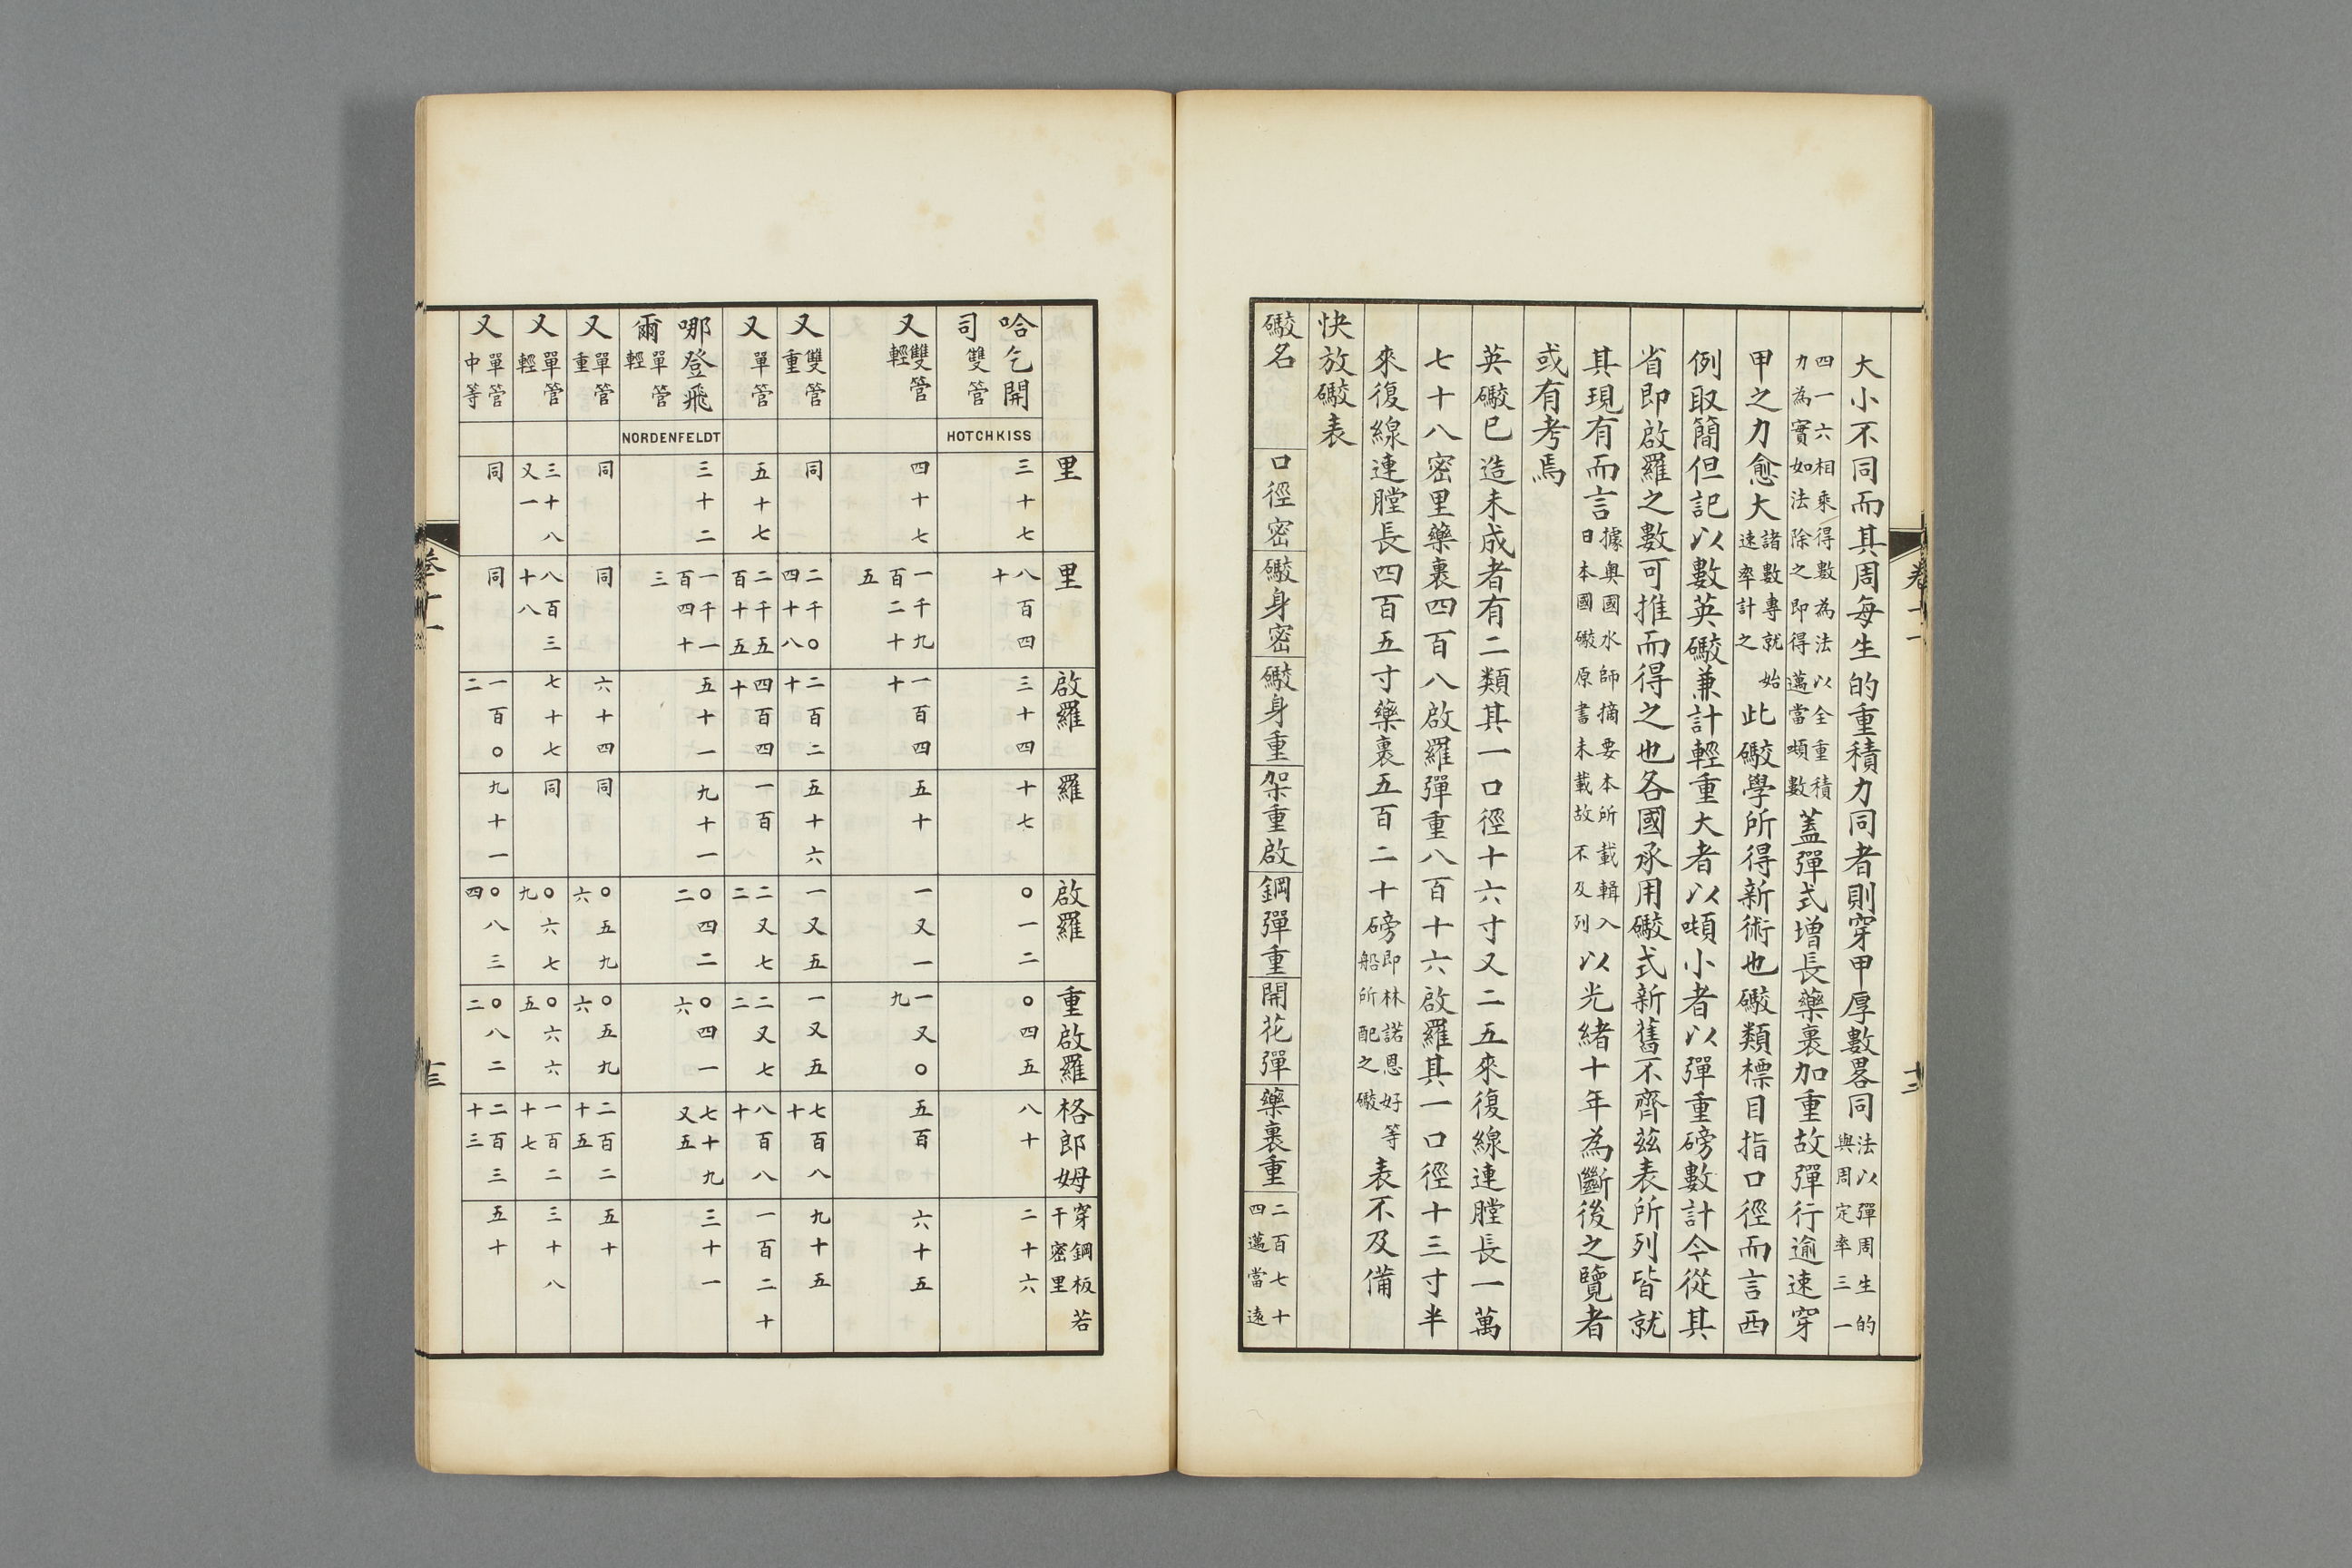 卷十一
大小不同而其周每生的重積力同者則穿甲厚數畧同法以彈周生的與周定率三一
四一六相乘得數為法以全重積力為實如法除之即得邁當噸數蓋彈式增長藥裹加重故彈行逾速穿
甲之力愈大諸數專就始速率計之此礮學所得新術也礮類標目指口徑而言西
例取簡但記以數英礮兼計輕重大者以噸小者以彈重磅數計今從其
省即啟羅之數可推而得之也各國承用礮式新舊不齊茲表所列皆就
其現有而言據奧國水師摘要本所載輯入日本國礮原書未載故不及列以光緒十年為斷後之覽者
或有考焉
英礮已造未成者有二類其一口徑十六寸又二五來復線連膛長一萬
七十八密里藥裹四百八啟羅彈重八百十六啟羅其一口徑十三寸半
來復線連膛長四百五寸藥裹五百二十磅即林諾恩好等船所配之礮表不及備
快放礮表
礮名
口徑密
礮身密
礮身重
架重啟
鋼彈重
開花彈
藥裹重
二百七十四邁當遠
里
里
啟羅
羅
啟羅
重啟羅
格郎姆
穿鋼板若干密里
哈乞開司雙管
HOTCHKISS
三十七
八百四十
三十四
十七
〇一二
〇四五
八十
二十六
又雙管輕
四十七
一千九百二十五
一百四十
五十
一又一
一又〇九
五百
六十五
又雙管重
同
二千〇四十八
二百二十
五十六
一又五
一又五
七百八十
九十五
又單管
五十七
二千五百十五
四百四十
一百
二又七二
二又七二
八百八十
一百二十
哪登飛爾單管輕
NORDENFELDT
三十二
一千一百四十三
五十一
九十一
〇四二二
〇四一六
七十九又五
三十一
又單管重
同
同
六十四
同
〇五九六
〇五九六
二百二十五
五十
又單管輕
三十八又一
八百三十八
七十七
同
〇六七九
〇六六五
一百二十七
三十八
又單管中等
同
同
一百〇二
九十一
〇八三四
〇八二二
二百三十三
五十
卷十一